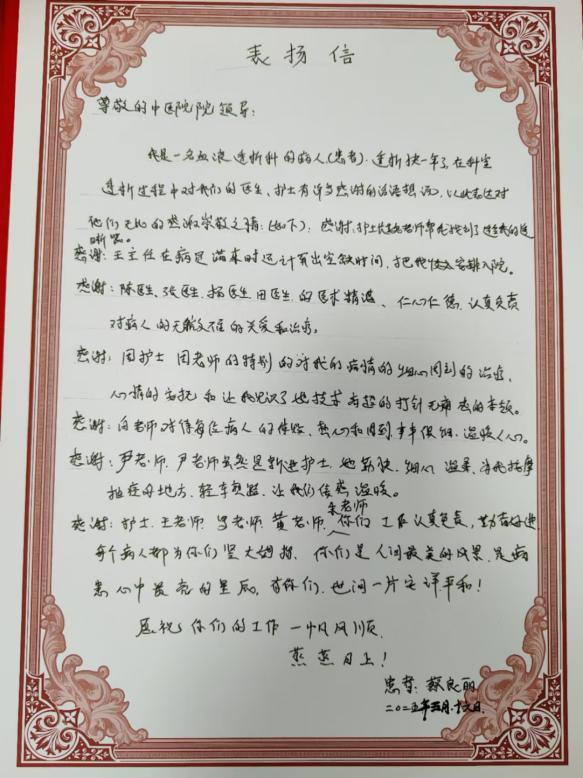 表扬信
尊敬的中医院院领导:
我是一名血液透析科的病人(患者).透析快一年了,在科室
透析过程中对我们的医生、护士有许多感谢的话语想说,以此表达对
他们无比的感激崇敬之情:(如下):感谢:护士长老师帮我找到了适合我的透
析器。
感谢:王主任在病区满床时还计算出空缺时间,把我收入安排入院。
感谢:陈医生、张医生、杨医生、田医生、的医术精湛、仁心仁德、认真负责
对病人的无微不至的关爱和治疗。
感谢:周护士 周老师的特别的对我的病情的细心周到的治疗、
心情的安抚和让我见识了她技术高超的打针无痛感的本领。
感谢:向老师对待每位病人的体贴、热心和周到事事俱细、温暖人心。
感谢:尹老师、尹老师虽然是新进护士、她勤快、细心、温柔、为我按摩
抽痉的地方、轻车熟路、让我们倍感温暖。
朱老师
感谢:护士、王老师、罗老师、黄老师、你们工作认真负责,
每个病人都为你们竖大姆指、你们是人间最美的风景、是病
患心中最亮的星辰,有你们,世间一片安详平和!
恩祝你们的工作一帆风顺、
蒸蒸日上!
患者:蔡良丽
二〇二五年三月.十六日.